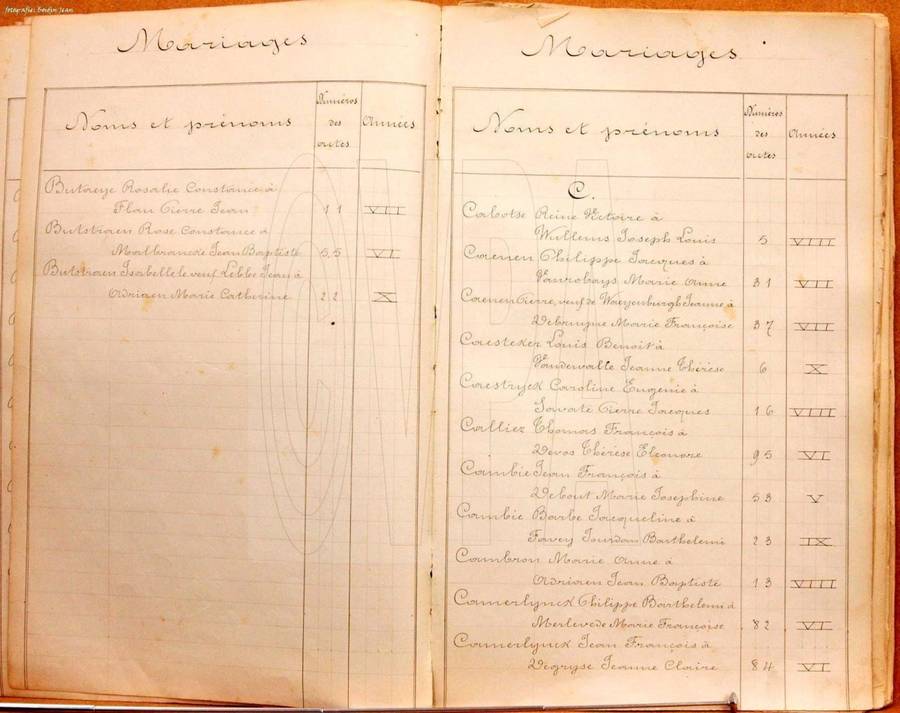 fotografie: Gerdin Jean
Mariages
Noms et prénoms
Numéros des actes
Années
Butaeye Rosalie Constance à
Flau Pierre Jean 11 VII
Butstraen Rose Constance à
Malbrancke Jean Baptiste 55 VI
Butstraen Isabelle le veuf Lebbe Jean à
Adriaen Marie Catherine 22 X
Mariages
Noms et prénoms
Numéros des actes
Années
C.
Cabotse Reine Victoire à
Willems Joseph Louis 5 VIII
Caenen Philippe Jacques à
Vanrobays Marie Anne 31 VII
Caenen Pierre, veuf de Waeyenburgh Jeanne à
Debruyne Marie Françoise 37 VII
Caesteker Louis Benoit à
Vandewalle Jeanne Thérèse 6 X
Caestryck Caroline Eugenie à
Savate Pierre Jacques 16 VIII
Calliez Thomas François à
Devos Thérèse Eleonore 95 VI
Cambie Jean François à
Debout Marie Josephine 53 V
Cambie Barbe Jacqueline à
Favey Jourdan Barthelemi 23 IX
Cambron Marie Anne à
Adriaen Jean Baptiste 13 VIII
Camerlynck Philippe Barthelemi à
Merlevede Marie Françoise 82 VI
Camerlynck Jean François à
Degryse Jeanne Claire 84 VI